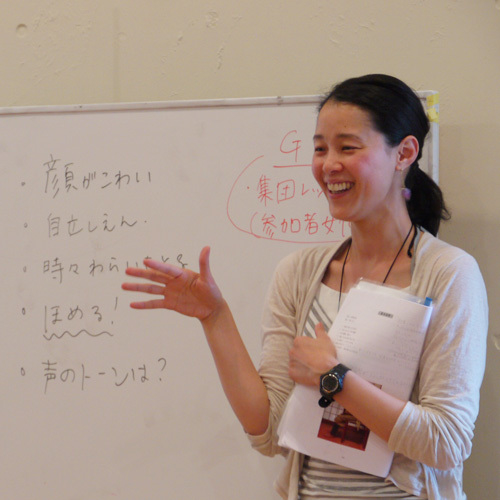 ・顔がこわい
・自立しえん.
・時々わらい
・ほめる!
・声のトーンは?
G
・集団レッ
(参加者女